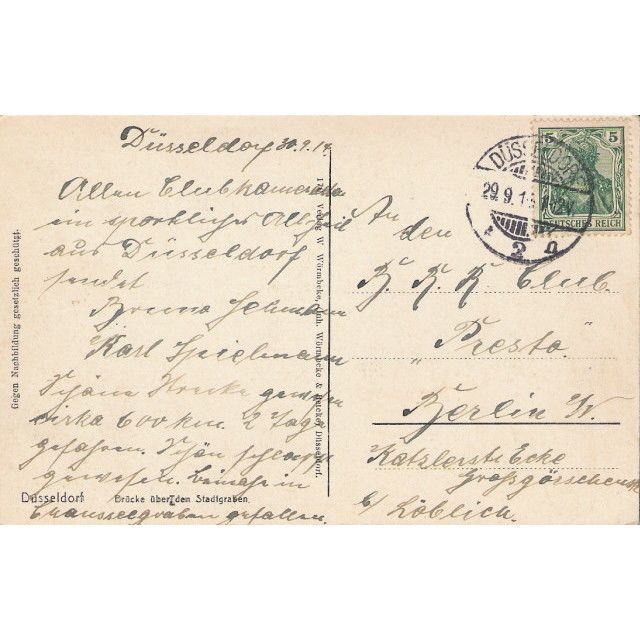 Düsseldorf 30.9.14
Allen Clubkameraden
ein sportliches All Heil
aus Düsseldorf
sendet
Bruno
Karl Spielmann
Schöne Strecke gewesen
zirka 600 km. 2 Tage
gefahren. Schön schlapp
gewesen. Beinahe in
Chausseegraben gefallen.
Düsseldorf Brücke über den Stadtgraben.
Gegen Nachbildung gesetzlich geschützt.
Verlag W. Würmbcke, Inh. Würmbcke & Deicker Düsseldorf.
5 5
DEUTSCHES REICH
DÜSSELDORF
29.9.1
2 n
An
den
B. R. K. Club
„Presto"
Berlin W.
Katzlerstr Ecke
Großgörschenstr
b/ Löblich.